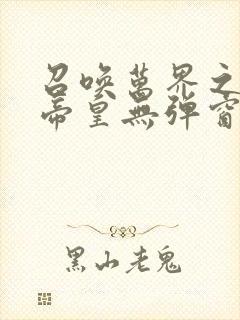 召唤萬界之
帝皇無弹窗
黑山老鬼